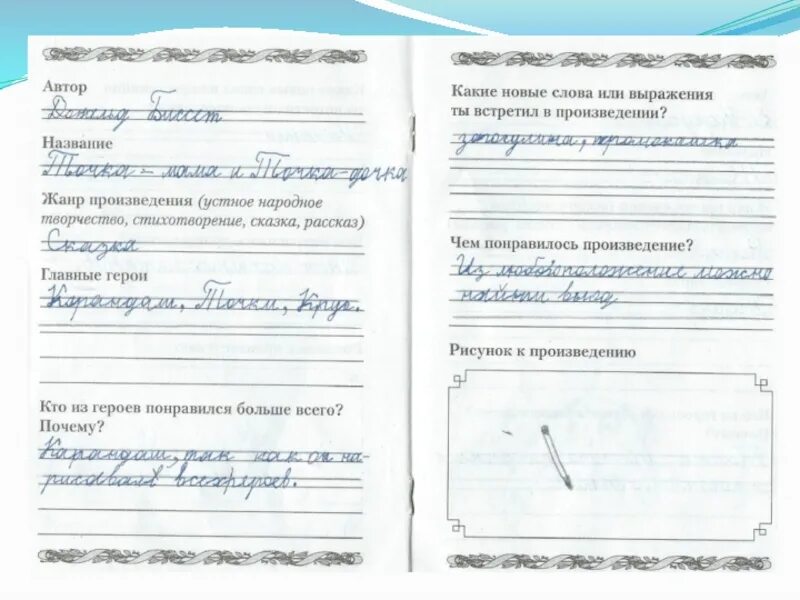 Автор
Дональд Биссет
Название
Точка-мама и Точка-дочка
Жанр произведения (устное народное
творчество, стихотворение, сказка, рассказ)
Сказка
Главные герои
Карандаш, Точки, Круг.
Кто из героев понравился больше всего?
Почему?
Карандаш, так как он на-
рисовал всех героев.
Какие новые слова или выражения
ты встретил в произведении?
промокашка
Чем понравилось произведение?
Из любого положение можно
найти выход
Рисунок к произведению